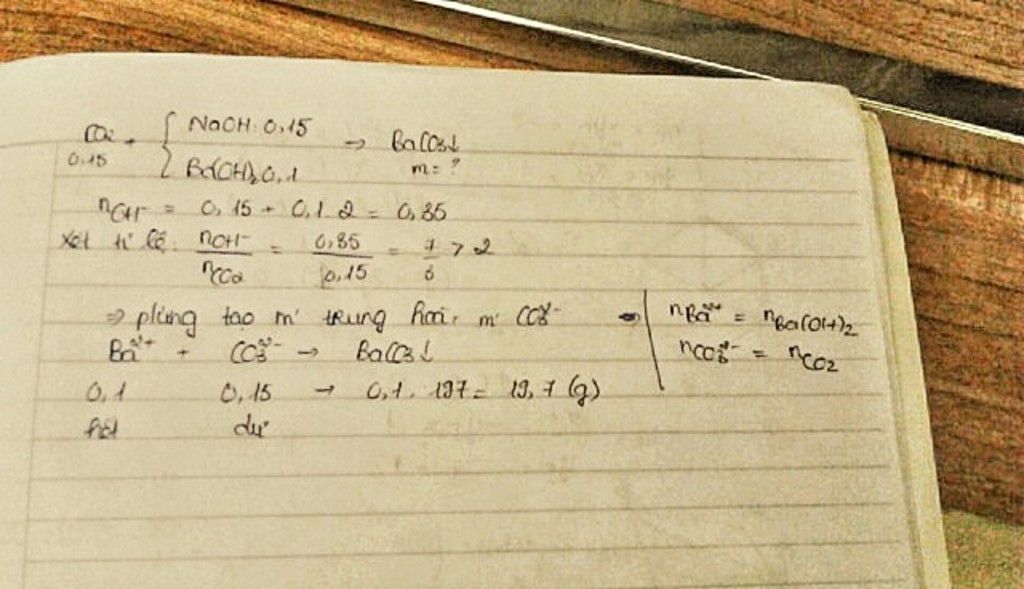 CO2 + { NaOH: 0,15 → BaCO3↓
0,15 Ba(OH)2 0,1 m = ?
nOH- = 0,15 + 0,1.2 = 0,35
Xét tỉ lệ: nOH-/nCO2 = 0,35/0,15 = 7/3 > 2
⇒ p/ứng tạo m' trung hoà, m' CO3²- ⇒ | nBa²+ = nBa(OH)2
Ba²+ + CO3²- → BaCO3↓ | nCO3²- = nCO2
0,1 0,15 → 0,1.197 = 19,7 (g)
hết dư